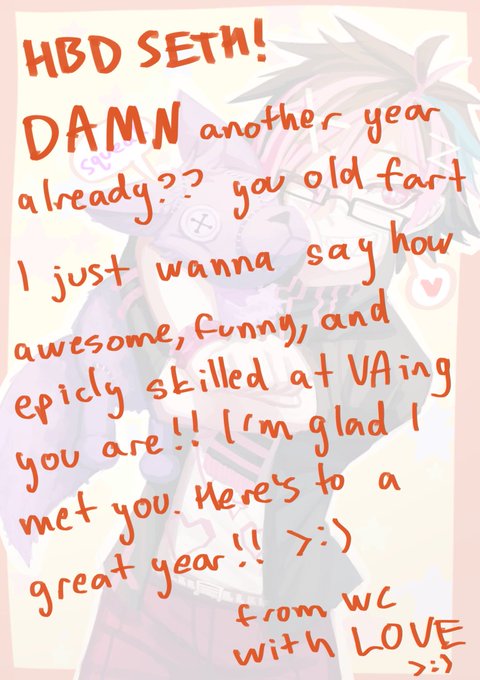 HBD SETH!
DAMN another year
already?? you old fart
I just wanna say how
awesome, funny, and
epicly skilled at VAing
you are!! I'm glad I
met you. Here's to a
great year!! >:)
from WC
with LOVE
>:)
squeeze